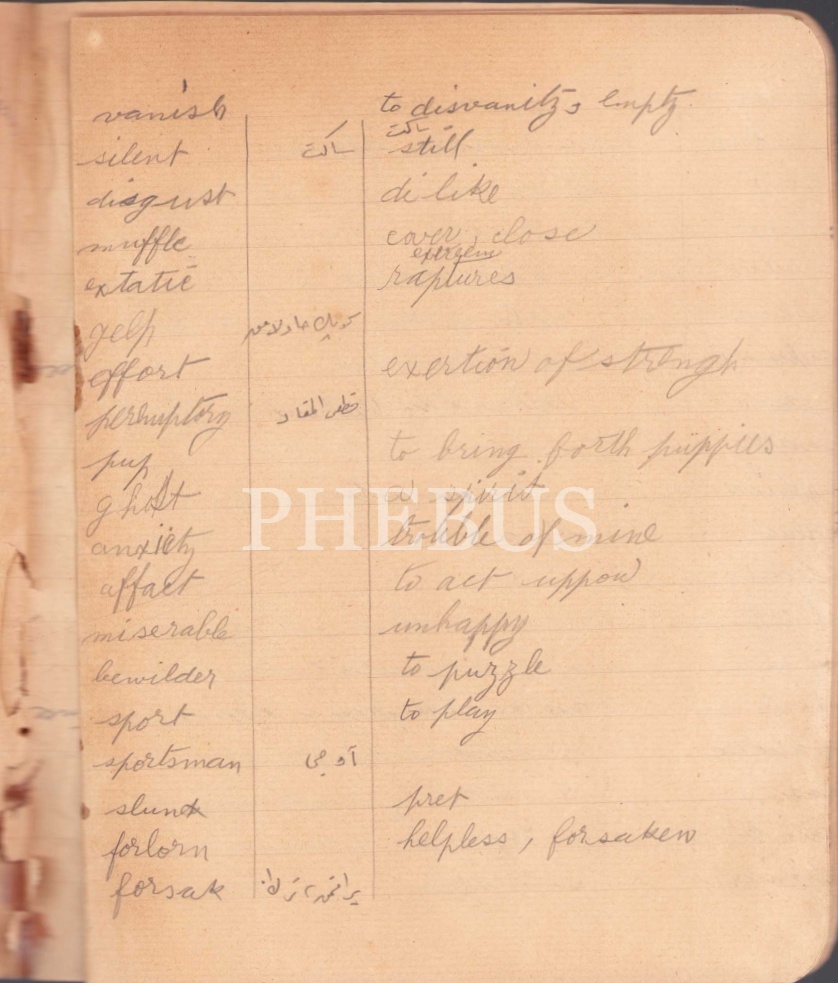 vanish to disvanity, empty
silent ساكت ساكت still
disgust dilike
muffle cover, close
extatic extreem raptures
yelp كوپك حاولامق
effort exertion of strengh
peremptory قطعى
pup to bring forth puppies
ghost a spirit
anxiety trouble of mine
affact to act uppon
miserable unhappy
bewilder to puzzle
sport to play
sportsman آوجى
slunk
forlorn helpless, forsaken
forsak براقمق، ترك
PHEBUS